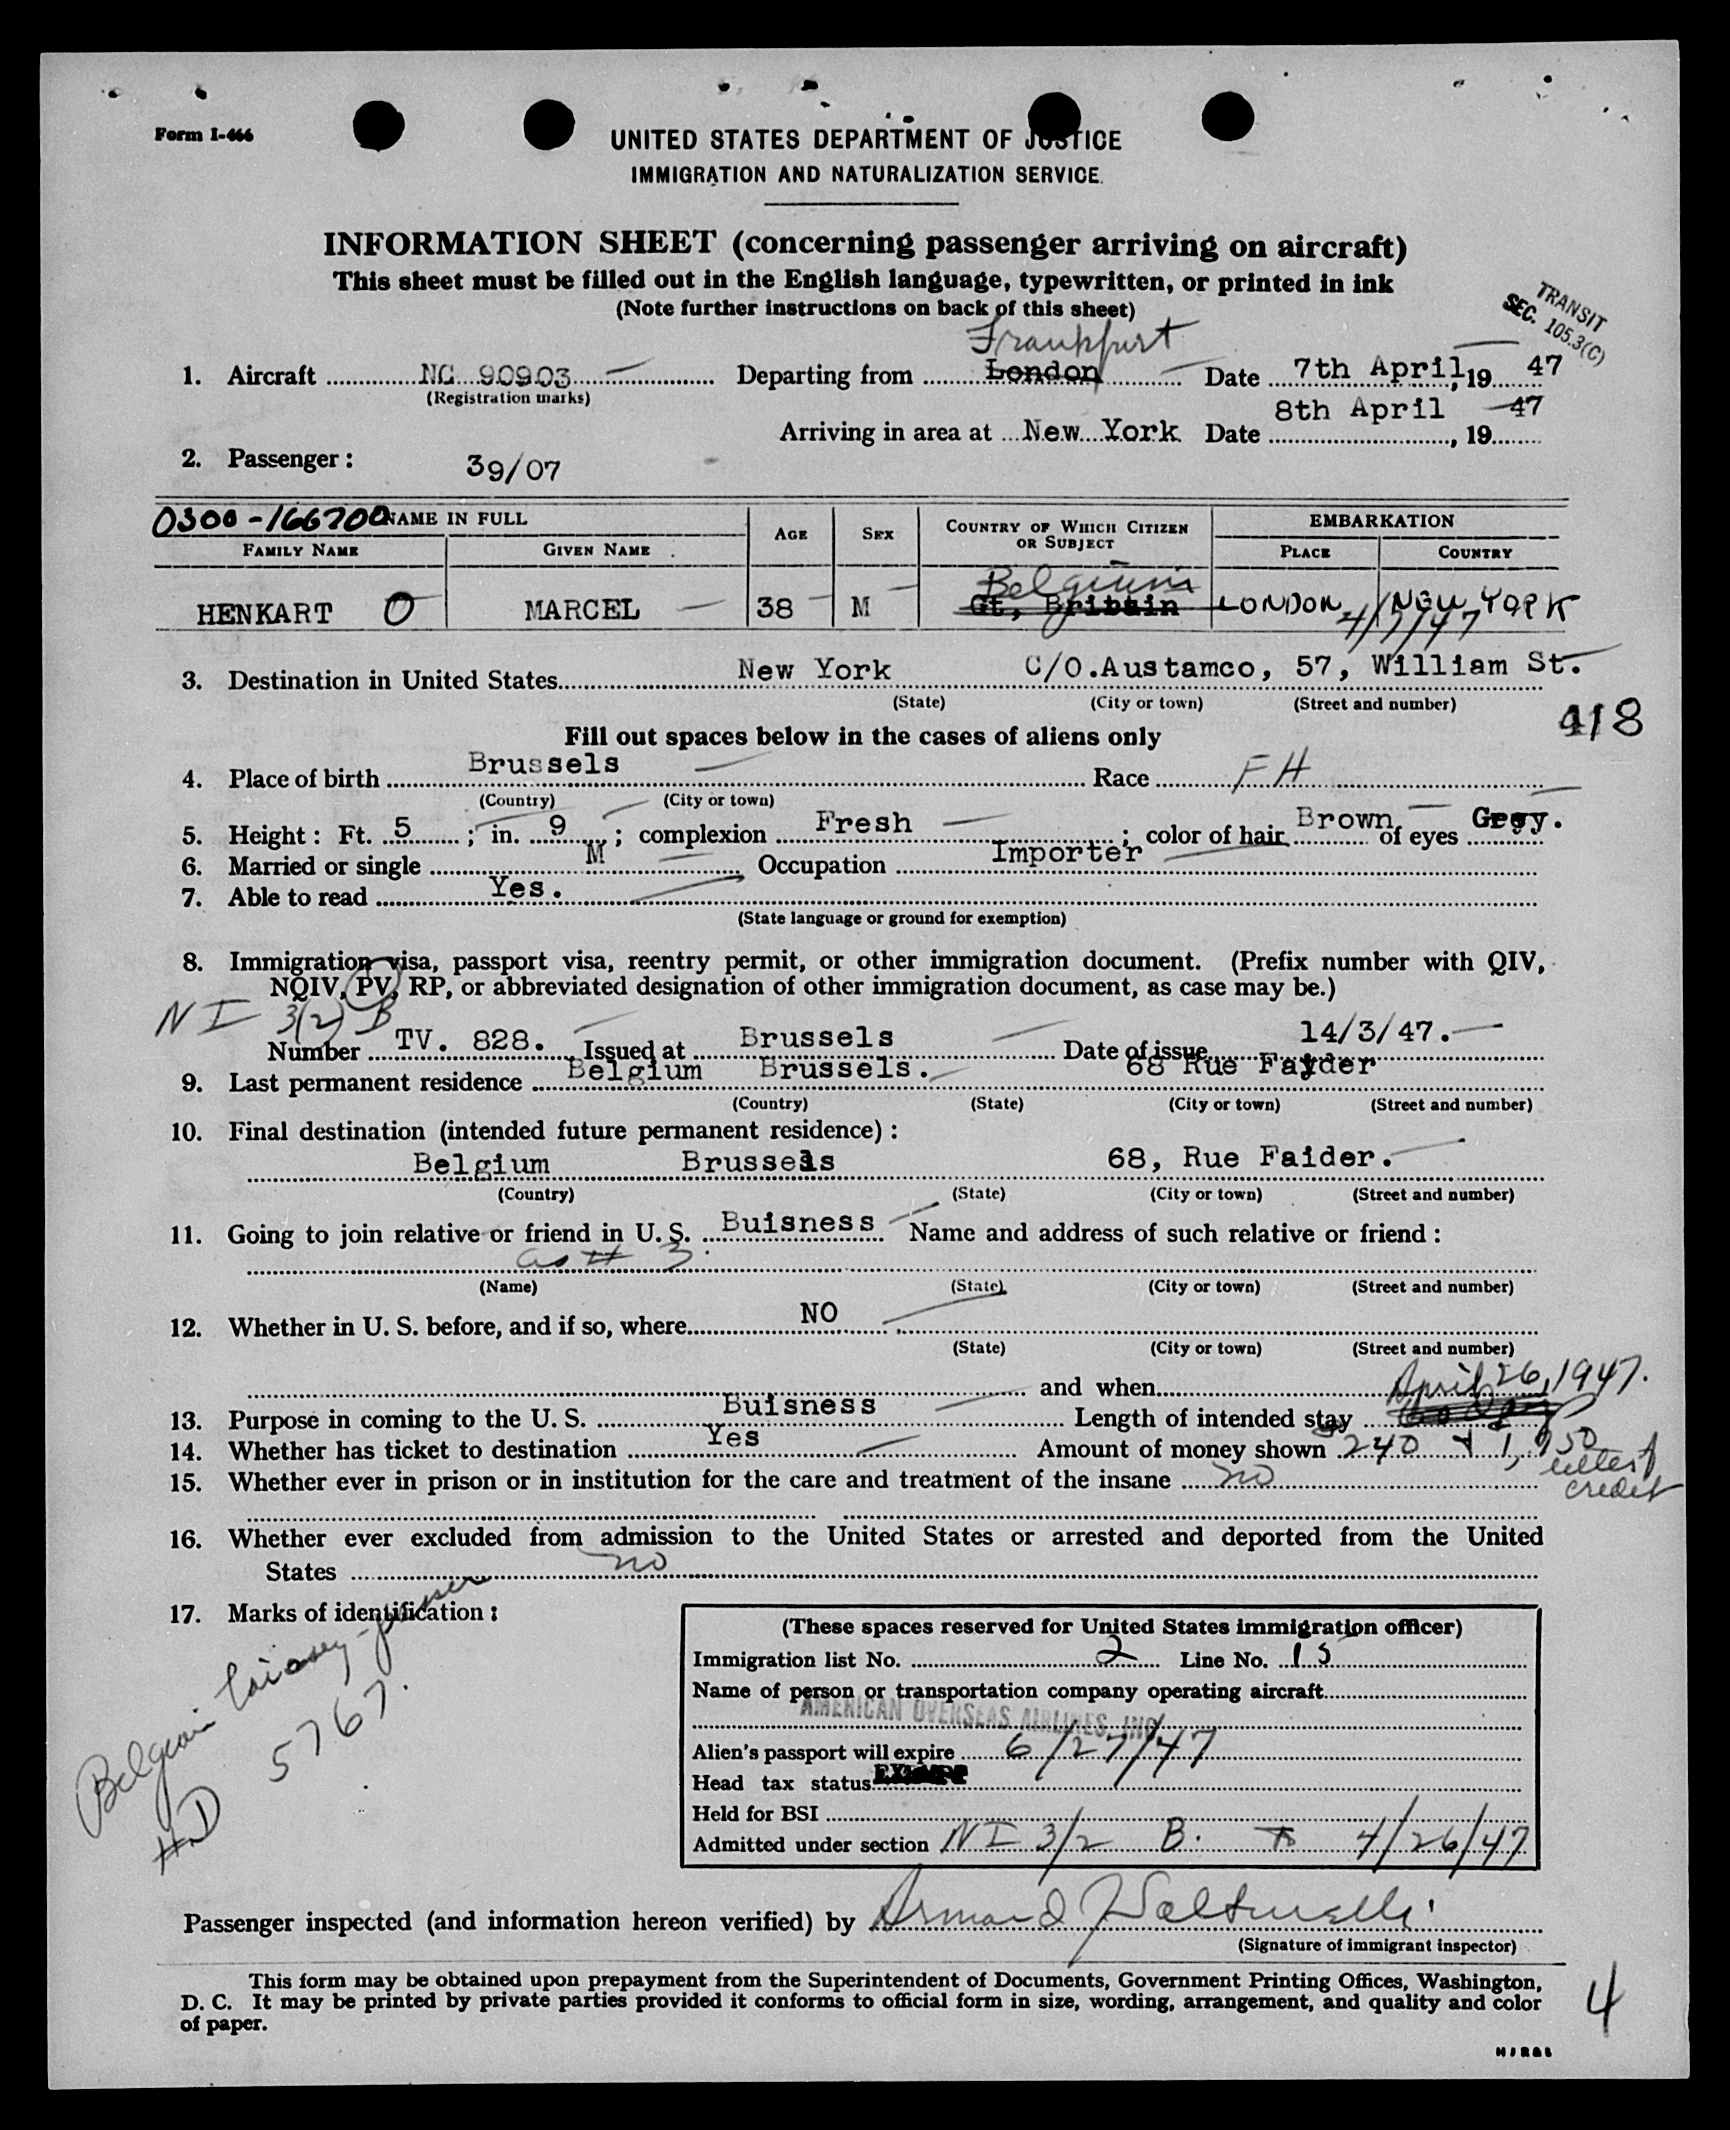 Form I-466
UNITED STATES DEPARTMENT OF JUSTICE
IMMIGRATION AND NATURALIZATION SERVICE
INFORMATION SHEET (concerning passenger arriving on aircraft)
This sheet must be filled out in the English language, typewritten, or printed in ink
(Note further instructions on back of this sheet)
TRANSIT
SEC. 105.3(C)
Frankfurt
1. Aircraft NC 90903 Departing from London Date 7th April, 19 47
(Registration marks)
Arriving in area at New York Date 8th April, 19 47
2. Passenger: 39/07
0300-166700 NAME IN FULL
FAMILY NAME GIVEN NAME AGE SEX COUNTRY OF WHICH CITIZEN OR SUBJECT EMBARKATION
PLACE COUNTRY
Belgium
HENKART O MARCEL 38 M Gt, Britain LONDON NEW YORK
4/7/47
3. Destination in United States New York C/O.Austamco, 57, William St.
(State) (City or town) (Street and number)
418
Fill out spaces below in the cases of aliens only
4. Place of birth Brussels Race FH
(Country) (City or town)
5. Height: Ft. 5; in. 9; complexion Fresh; color of hair Brown of eyes Grey.
6. Married or single M Occupation Importer
7. Able to read Yes.
(State language or ground for exemption)
8. Immigration visa, passport visa, reentry permit, or other immigration document. (Prefix number with QIV,
NQIV, PV, RP, or abbreviated designation of other immigration document, as case may be.)
NI 3(2) B
Number TV. 828. Issued at Brussels Date of issue 14/3/47.
9. Last permanent residence Belgium Brussels. 68 Rue Fayder
(Country) (State) (City or town) (Street and number)
10. Final destination (intended future permanent residence):
Belgium Brussels 68, Rue Faider.
(Country) (State) (City or town) (Street and number)
11. Going to join relative or friend in U. S. Buisness Name and address of such relative or friend:
as # 3
(Name) (State) (City or town) (Street and number)
12. Whether in U. S. before, and if so, where NO
(State) (City or town) (Street and number)
and when
April 26, 1947.
13. Purpose in coming to the U. S. Buisness Length of intended stay
14. Whether has ticket to destination Yes Amount of money shown 240 + 1,950
letter of
credit
15. Whether ever in prison or in institution for the care and treatment of the insane no
16. Whether ever excluded from admission to the United States or arrested and deported from the United
States no
17. Marks of identification:
Belgian
HD 5767.
(These spaces reserved for United States immigration officer)
Immigration list No. 2 Line No. 15
Name of person or transportation company operating aircraft
AMERICAN OVERSEAS AIRLINES, INC
Alien's passport will expire 6/27/47
Head tax status
Held for BSI
Admitted under section NI 3/2 B. to 4/26/47
Passenger inspected (and information hereon verified) by Armand
(Signature of immigrant inspector)
This form may be obtained upon prepayment from the Superintendent of Documents, Government Printing Offices, Washington,
D. C. It may be printed by private parties provided it conforms to official form in size, wording, arrangement, and quality and color
of paper.
4